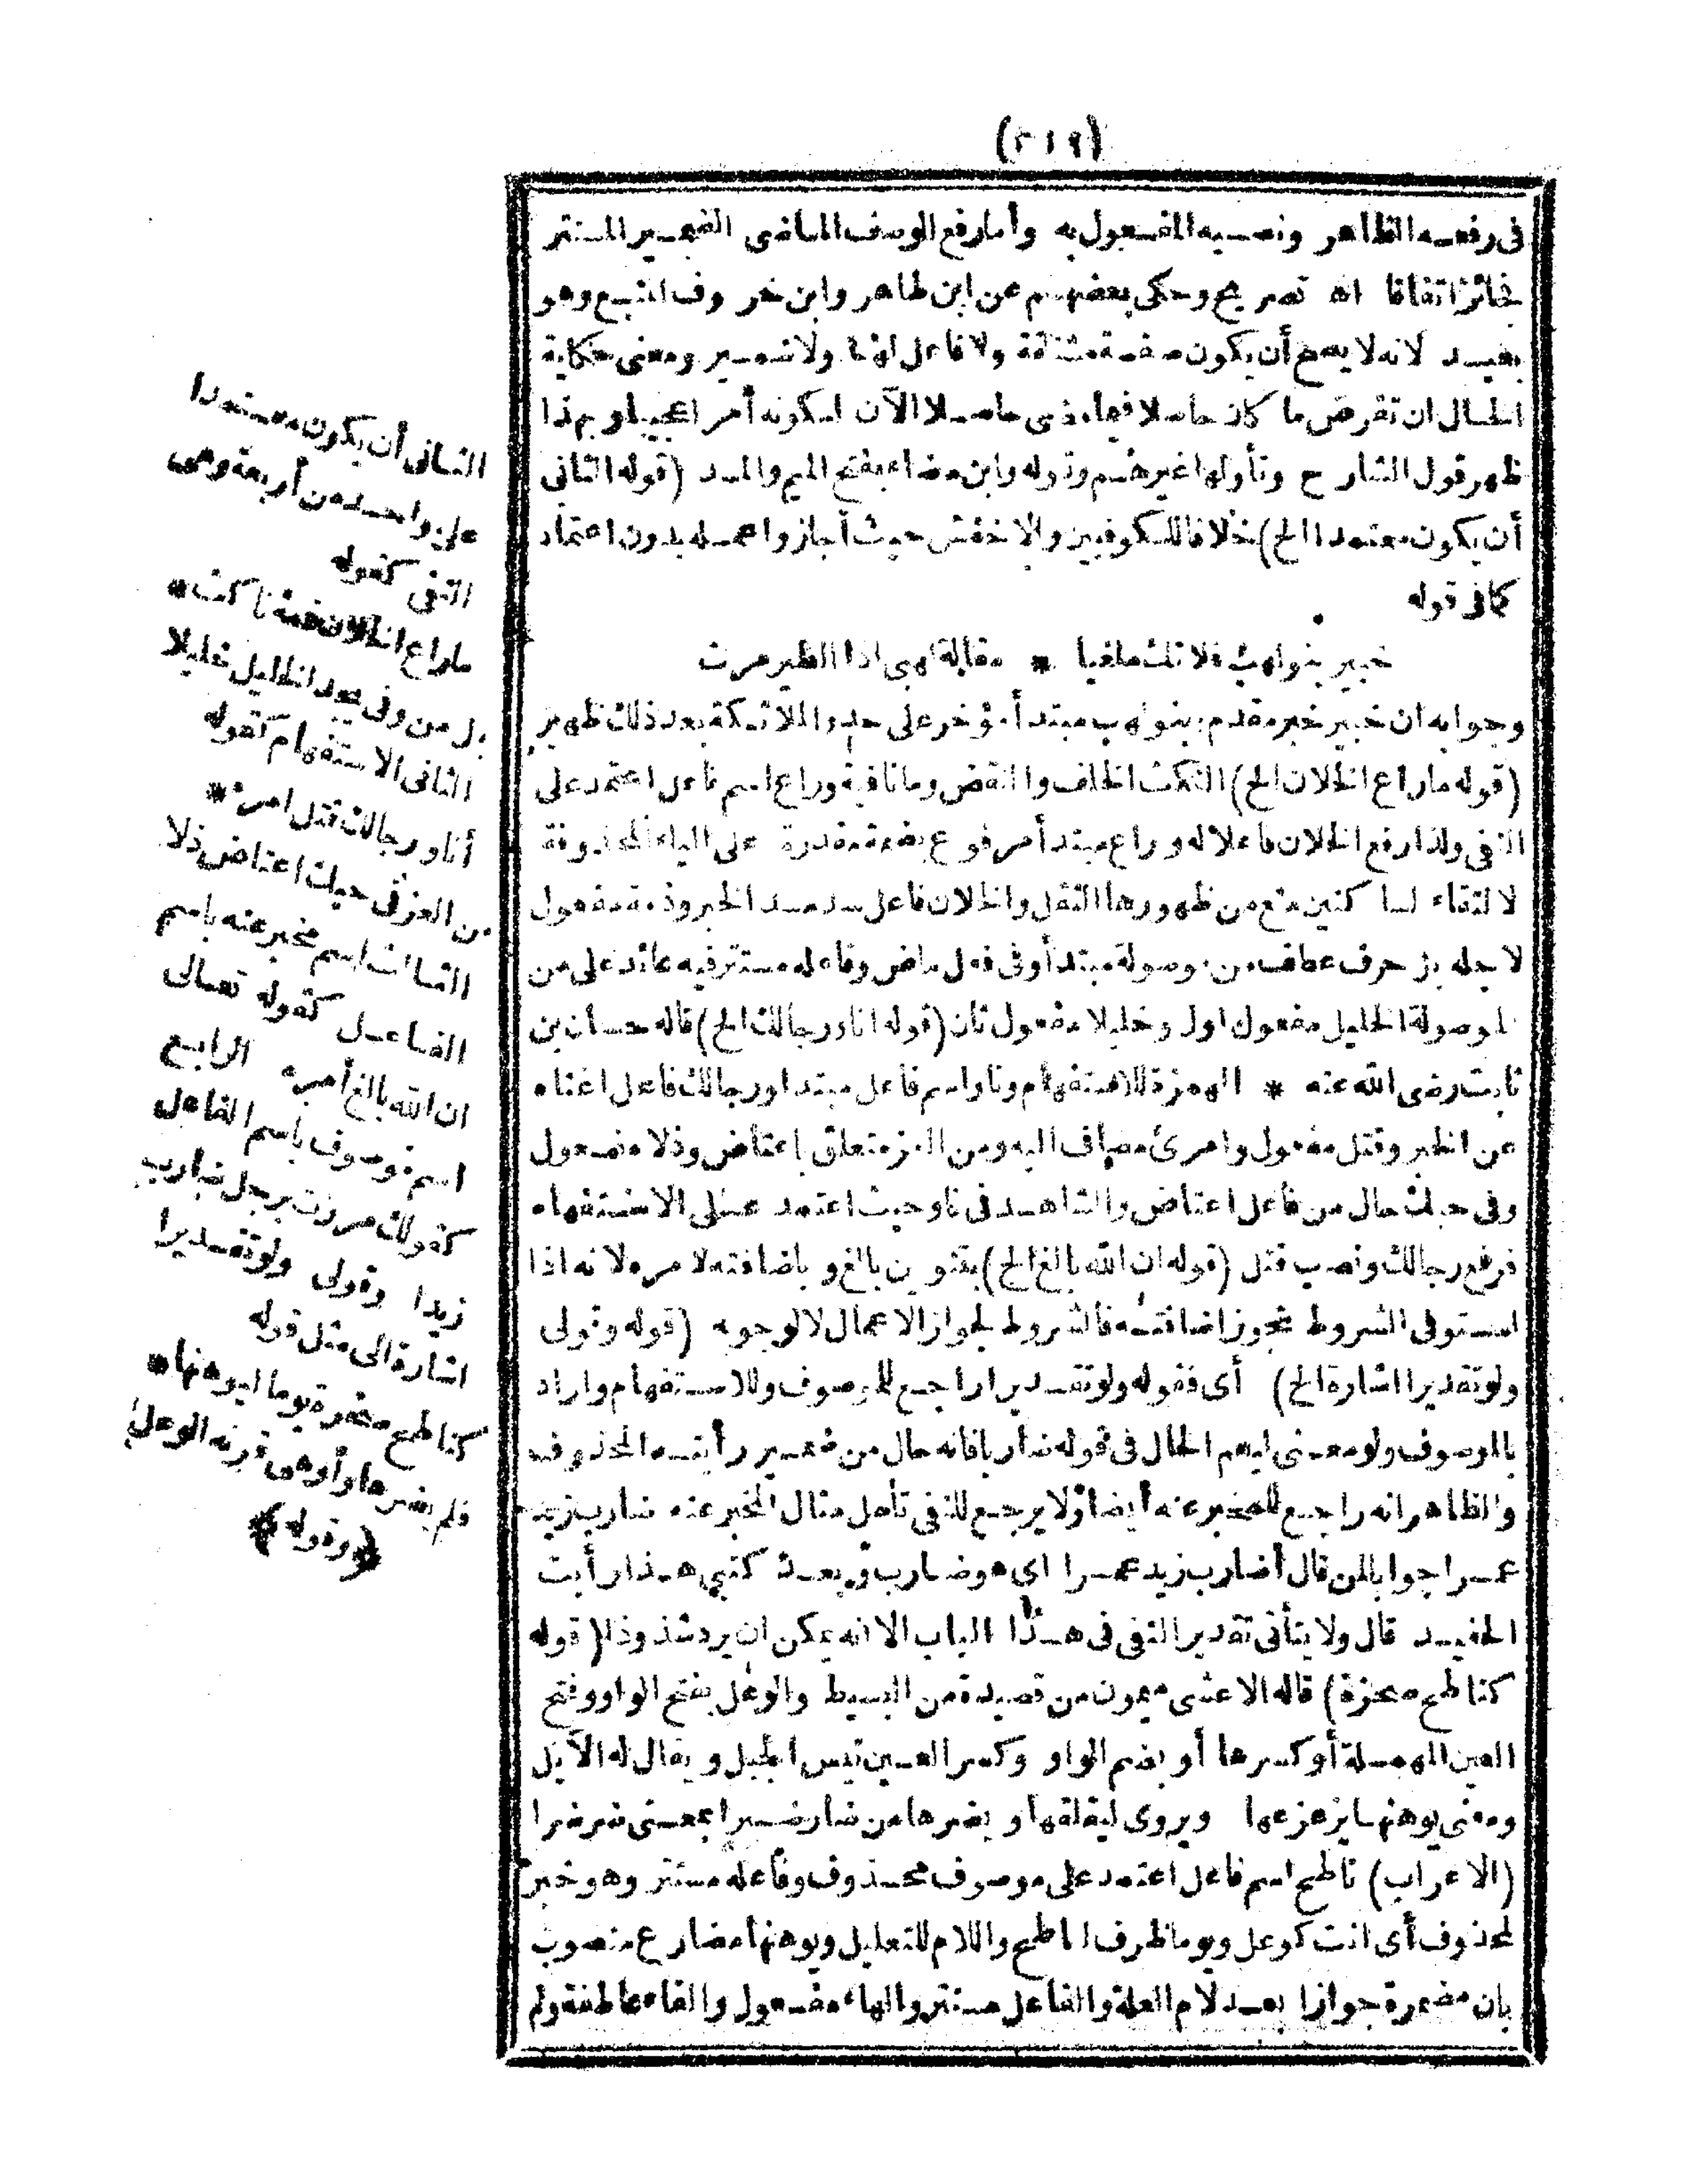 (٢١٩)
فى رفعه الظاهر ونصبه المفعول به وأما رفع الوصف الماضى الضمير المستتر
فجائز اتفاقا اه تصريح وحكى بعضهم عن ابن طاهر وابن خروف المنع وهو
بعيد لانه لا يصح أن يكون صفة مشتقة ولا فاعل لها ولا ضمير ومعنى حكاية
الحال ان تفرض ما كان حاصلا فيما مضى حاصلا الآن لكونه أمرا عجيبا وبهذا
ظهر قول الشارح وتأولها غيرهم وقوله وابن مضاء بفتح الميم والمد (قوله الثانى
أن يكون معتمدا الخ) خلافا للكوفيين والاخفش حيث أجازوا عمله بدون اعتماد
كما فى قوله
خبير بنو لهب فلا تك ملغيا * مقالة لهبى اذا الطير مرت
وجوابه ان خبير خبر مقدم وبنو لهب مبتدأ مؤخر على حد والملائكة بعد ذلك ظهير
(قوله ما راع الخلان الخ) النكث الخلف والنقض وما نافية وراع اسم فاعل اعتمد على
النفى ولذا رفع الخلان فاعلا له وراع مبتدأ مرفوع بضمة مقدرة على الياء المحذوفة
لالتقاء الساكنين منع من ظهورها الثقل والخلان فاعل سد مسد الخبر وذمة مفعول
لاجله بل حرف عطف من موصولة مبتدأ وفى فعل ماض وفاعله مستتر فيه عائد على من
الموصولة الخليل مفعول اول وخليلا مفعول ثان (قوله أناو رجالك الخ) قاله حسان بن
ثابت رضى الله عنه * الهمزة للاستفهام وناو اسم فاعل مبتدا ورجالك فاعل اغناه
عن الخبر وقتل مفعول وامرئ مضاف اليه ومن العز متعلق باعتاض وذلا مفعول
وفى حبك حال من فاعل اعتاض والشاهد فى ناو حيث اعتمد على الاستفهام
فرفع رجالك ونصب قتل (قوله ان الله بالغ الخ) بتنوين بالغ و باضافته لامره لانه اذا
استوفى الشروط تجوز اضافته فالشروط لجواز الاعمال لا لوجوبه (قوله وقولى
ولو تقديرا اشارة الخ) أى فقوله ولو تقديرا راجع للموصوف وللاستفهام واراد
بالموصوف ولو معنى ليعم الحال فى قوله ضاربا فانه حال من ضمير رأيته المحذوف
والظاهر انه راجع للمخبر عنه أيضا ولا يرجع للنفى تأمل مثال المخبر عنه ضارب زيد
عمرا جوابا لمن قال أضارب زيد عمرا اى هو ضارب وبعد كتبى هذا رأيت
الحفيد قال ولا يتأتى تقدير النفى فى هذا الباب الا انه يمكن ان يرد شذوذا (قوله
كناطح صخرة) قاله الاعشى ميمون من قصيدة من البسيط والوعل بفتح الواو وفتح
العين المهملة أو كسرها أو بضم الواو وكسر العين تيس الجبل ويقال له الآيل
ومعنى يوهنها يزعزعها ويروى ليفلقها و يضرها من ضار ضيرا بمعنى ضر ضرا
(الاعراب) ناطح اسم فاعل اعتمد على موصوف محذوف وفاعله مستتر وهو خبر
لمحذوف أى انت كوعل ويوما ظرف لناطح واللام للتعليل ويوهنها مضارع منصوب
بان مضمرة جوازا بعد لام العلة والفاعل مستتر والهاء مفعول والفاء عاطفة ولم
الثانى أن يكون معتمدا
على واحد من أربعة وهى
النفى كقوله
ما راع الخلان ذمة ناكث *
بل من وفى يجد الخليل خليلا
الثانى الاستفهام كقوله
أناو رجالك قتل امرئ *
من العز فى حبك اعتاض ذلا
الثالث اسم مخبر عنه باسم
الفاعل كقوله تعالى
ان الله بالغ أمره الرابع
اسم موصوف باسم الفاعل
كقولك مررت برجل ضارب
زيدا وقولى ولو تقديرا
اشارة الى مثل قوله
كناطح صخرة يوما ليوهنها *
فلم يضرها وأوهى قرنه الوعل
(وقوله)